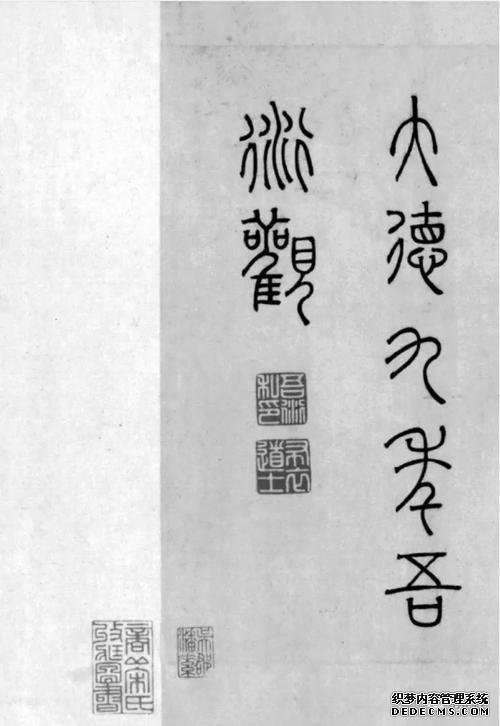 大德九年吾
衍觀
吾衍
私印
布衣
道士
织梦内容管理系统
DEDECMS.COM